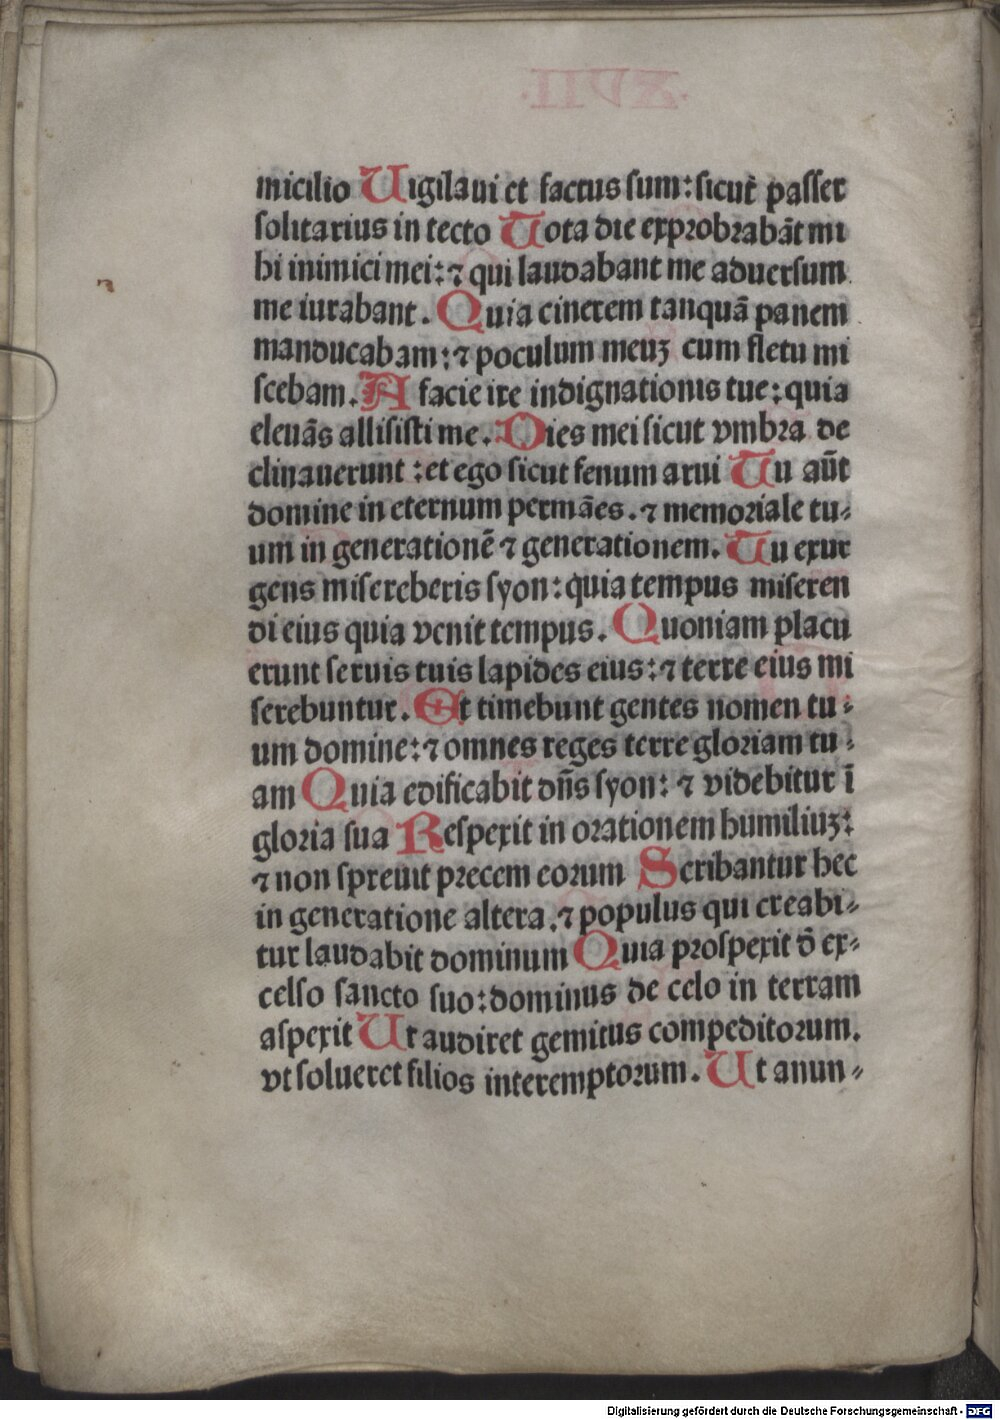 micilio Uigilaui et factus sum: sicut passer
solitarius in tecto Tota die exprobrabāt mi
hi inimici mei: ⁊ qui laudabant me aduersum
me iurabant. Quia cinerem tanquā panem
manducabam: ⁊ poculum meuꝫ cum fletu mi
scebam. A facie ire indignationis tue: quia
eleuās allisisti me. Dies mei sicut vmbra de
clinauerunt: et ego sicut fenum arui Tu aūt
domine in eternum permāes. ⁊ memoriale tu⸗
um in generationē ⁊ generationem. Tu exur
gens misereberis syon: quia tempus miseren
di eius quia venit tempus. Quoniam placu
erunt seruis tuis lapides eius: ⁊ terre eius mi
serebuntur. Et timebunt gentes nomen tu⸗
um domine: ⁊ omnes reges terre gloriam tu⸗
am Quia edificabit dn̄s syon: ⁊ videbitur ī
gloria sua Respexit in orationem humiliuꝫ:
⁊ non spreuit precem eorum Scribantur hec
in generatione altera. ⁊ populus qui creabi⸗
tur laudabit dominum Quia prospexit d̄ ex⸗
celso sancto suo: dominus de celo in terram
aspexit Ut audiret gemitus compeditorum.
vt solueret filios interemptorum. Ut anun⸗
Digitalisierung gefördert durch die Deutsche Forschungsgemeinschaft - DFG